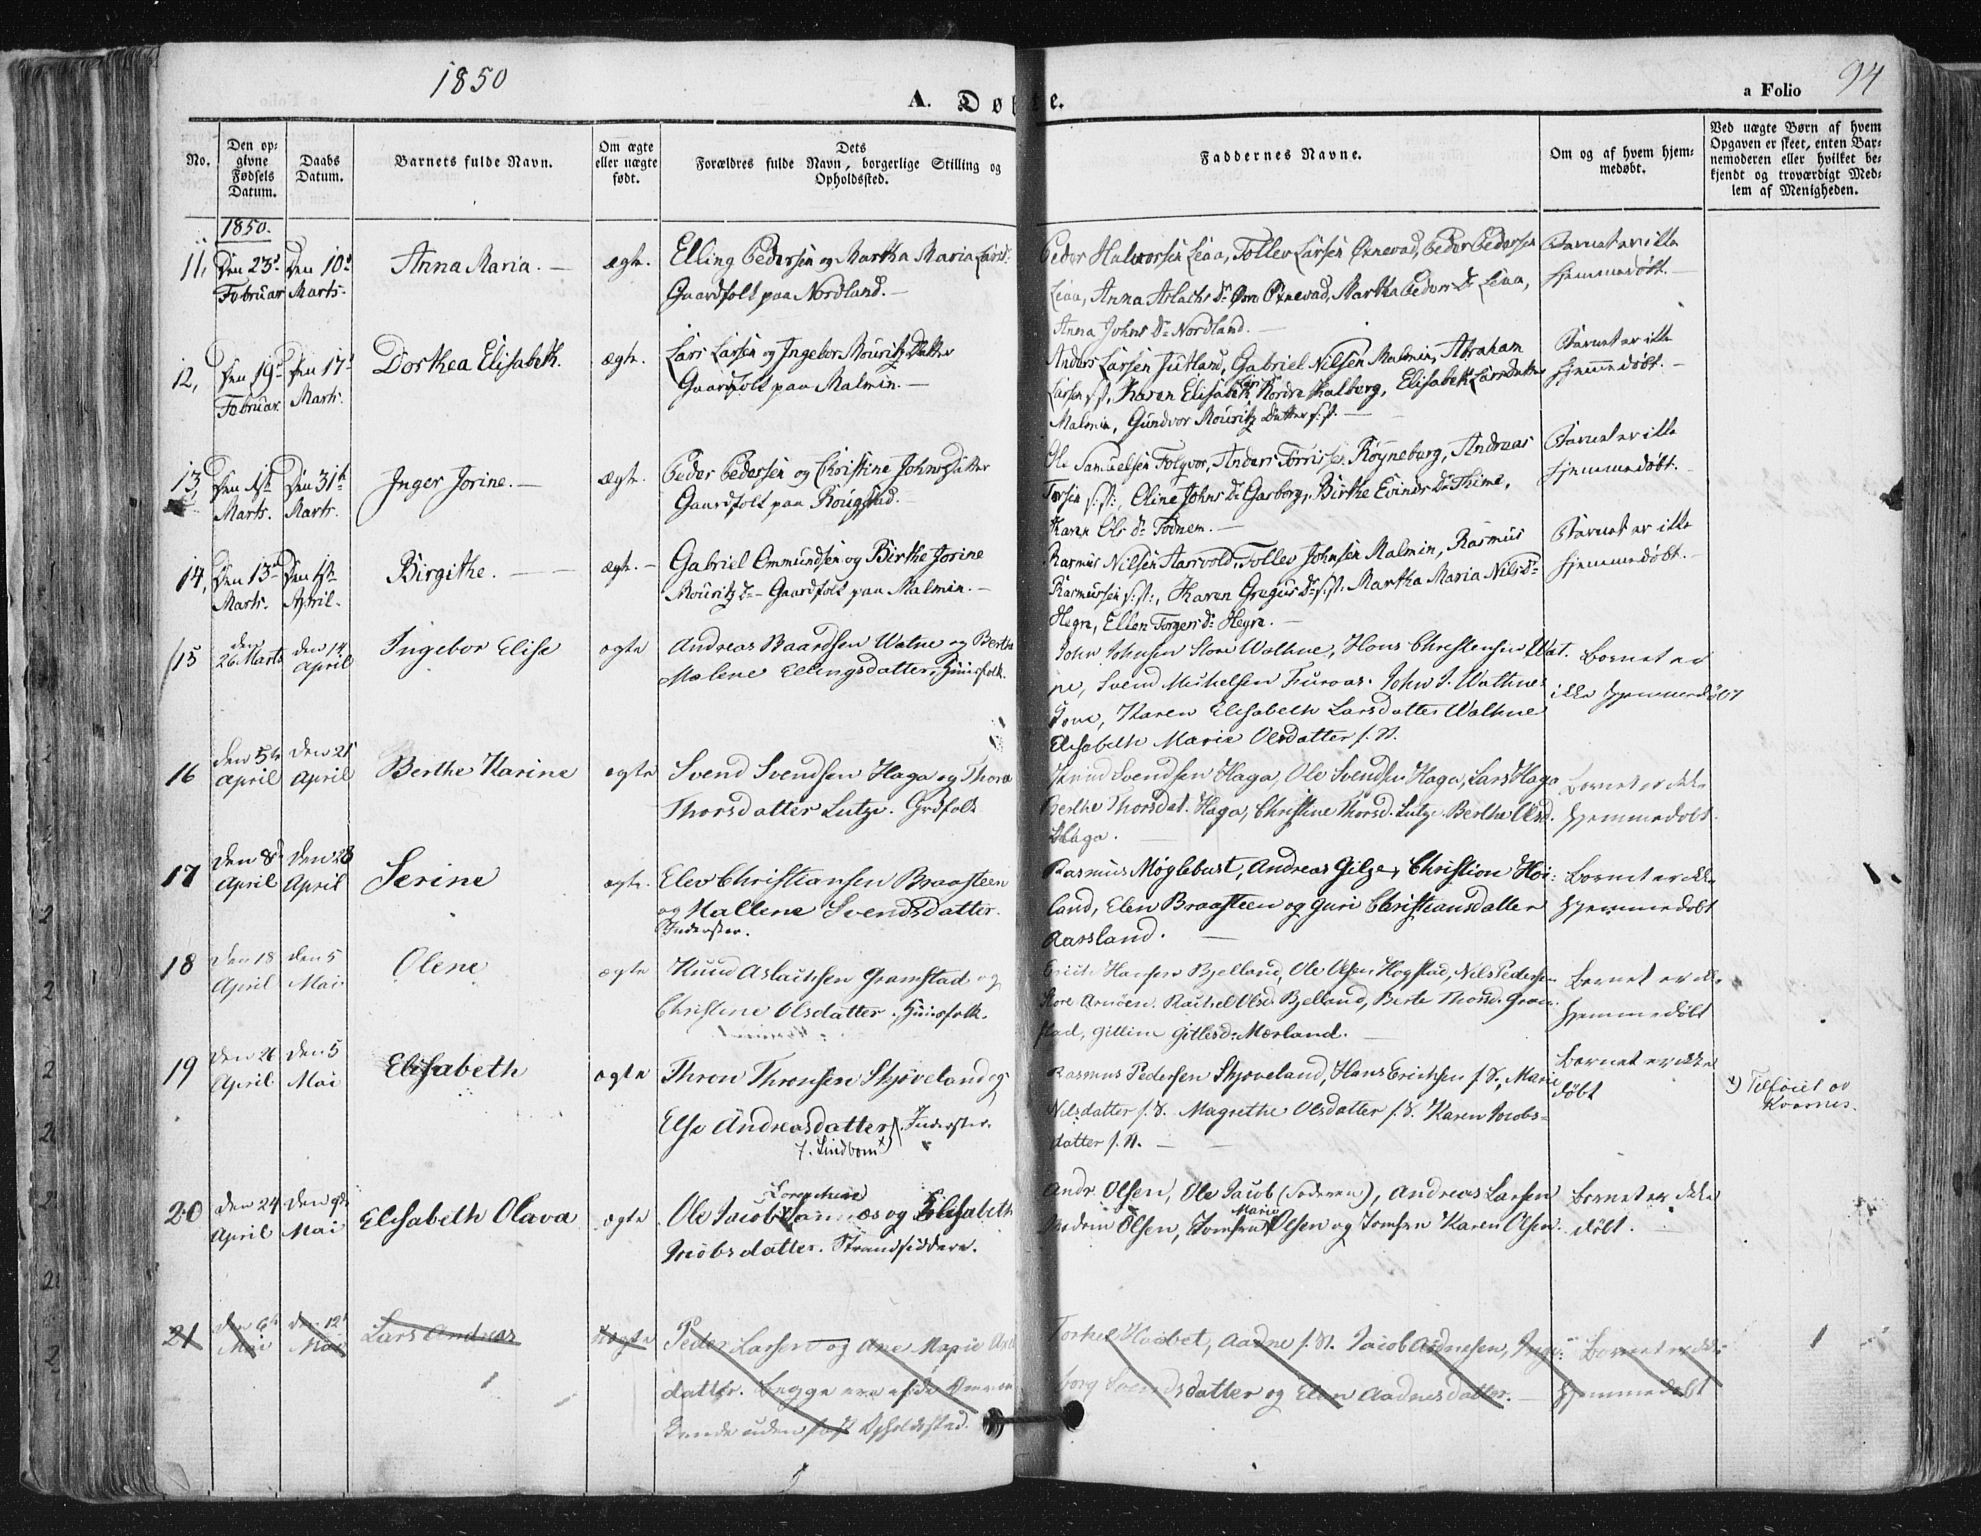 1850
94
A. Døbte.
a Folio
No.
Den op-
givne
Fødsels
Datum.
Daabs
Datum.
Barnets fulde Navn.
Om ægte
eller uægte
født.
Dets
Forældres fulde Navn, borgerlige Stilling og
Opholdssted.
Faddernes Navne.
Om og af hvem hjem-
medøbt.
Ved uægte Børn af hvem
Opgaven er skeet, enten Bar-
nemoderen eller hvilket be-
kjendt og troværdigt Med-
lem af Menigheden.
1850.
11, Den 23d Februar Den 10d Marts Anna Maria. ægte. Elling Pedersen og Martha Maria Larsd:
Gaardfolk paa Nordland.
Peder Halvorsen Leaa, Tollev Larsen Øxnevad, Peder Pedersen
Leaa, Anna Aslachs Dr Øxnevad, Martha Peders Dr Leaa,
Anna Johns Dr Nordland.
Barnet er ikke
hjemmedøbt.
12, Den 19d Februar. Den 17d Marts. Dorthea Elisabeth. ægte. Lars Larsen og Ingebor Mouritz Datter
Gaardfolk paa Malmin.
Anders Larsen Jutland, Gabriel Nilsen Malmin, Abraham
Larsen s. st., Karen Elisabeth Nordre Kalberg, Elisabeth Larsdatter
Malmin, Gundvor Mouritz Datter s. st.
Barnet er ikke
hjemmedøbt.
13, Den 1ste Marts. Den 31te Marts. Inger Jorine. ægte. Peder Pedersen og Christine Johns Datter
Gaardfolk paa Rougstad.
Ole Samuelsen Folgvor, Anders Torrisse Røyneberg, Andreas
Torsen s: st:, Eline Johns Dr Garborg, Birthe Evinds Dr Thime,
Karen Ols Dr Todnem.
Barnet er ikke
hjemmedøbt.
14, Den 13de Marts. Den 1ste April. Birgithe. ægte. Gabriel Ommundsen og Birthe Jorine
Mouritz Dr Gaardfolk paa Malmin.
Rasmus Nilsen Aarsvold, Tollev Johnsen Malmin, Rasmus
Rasmussen s. st:, Karen Gregus Dr s: st: Martha Maria Nils Dr
Hegre, Ellen Torgers Dr Hegre.
Barnet er ikke
hjemmedøbt.
15 den 26 Marts den 14 April Ingebor Elise ægte Andreas Baardsen Watne og Berthe
Malene Ellingsdatter, Huusfolk.
John Johnsen Store Wathne, Hans Christensen Wat-
ne, Svend Mikelsen Furaas. John J. Wathnes
Kone, Karen Elisabeth Larsdatter Wathne
Elisabeth Marie Olsdatter s. St.
Barnet er
ikke hjemmedøbt
16 den 5te April den 21 April Berthe Karine ægte Svend Svendsen Haga og Thora
Thorsdatter Lutze. Grdfolk
Svend Svendsen Haga, Ole Svendsen Haga, Lars Haga
Berthe Thorsdat. Haga, Christine Thorsd. Lutze Berthe Olsd.
Haga.
Barnet er ikke
hjemmedøbt.
17 den 8d April den 28 April Serine ægte. Elev Christiansen Braasteen
og Mallene Svendsdatter.
Inderster.
Rasmus Møglebust, Andreas Gilje, Christian Høi-
land, Elen Braasteen og Guri Christiansdatter
Aarsland.
Barnet er ikke
hjemmedøbt
18 den 18 April den 5 Mai Olene ægte Knud Aslaksen Gramstad og
Christine Olsdatter. Huusfolk.
Erich Hansen Bjelland, Ole Olsen Hogstad, Nils Pedersen
Store Arnøen. Rachel Olsd. Bjelland, Berte Thorsd. Gram-
stad, Gilline Gillesd: Mærland.
Barnet er ik-
hjemmedøbt
19 den 26 April den 5 Mai Elisabeth ægte Thron Thronsen Skjæveland og
Else Andreasdatter. Inderster.
f. Lindbom x)
Rasmus Pedersen Skjæveland, Hans Erichsen s. S., Marie
Nilsdatter s. S. Magrethe Olsdatter s. S. Karen Jacobs-
datter s. St.
Barnet er ikke
døbt
x) Tilføiet av
Kvarnes.
20 den 24 April den 9de Mai Elisabeth Olava ægte Ole Jacob Sannæs og Elisabeth
Jacobsdatter. Strandsiddere.
Andr. Olsen, Ole Jacob (Faderen), Andreas Larsen
Madam Olsen, Jomfru Marie Olsen og Jomfru Karen Olsen.
Barnet er ikke
døbt.
21 den 6te Mai den 12te Mai Lars Andreas uægte Peder Larsen og Ane Marie
datter. Begge ere
uden fast Opholdssted.
Torkel Haabet, Aadne s. St. Jacob Aadnesen, Inge-
borg Svendsdatter og Elen Aadnesdatter.
Barnet er ikke
hjemmedøbt